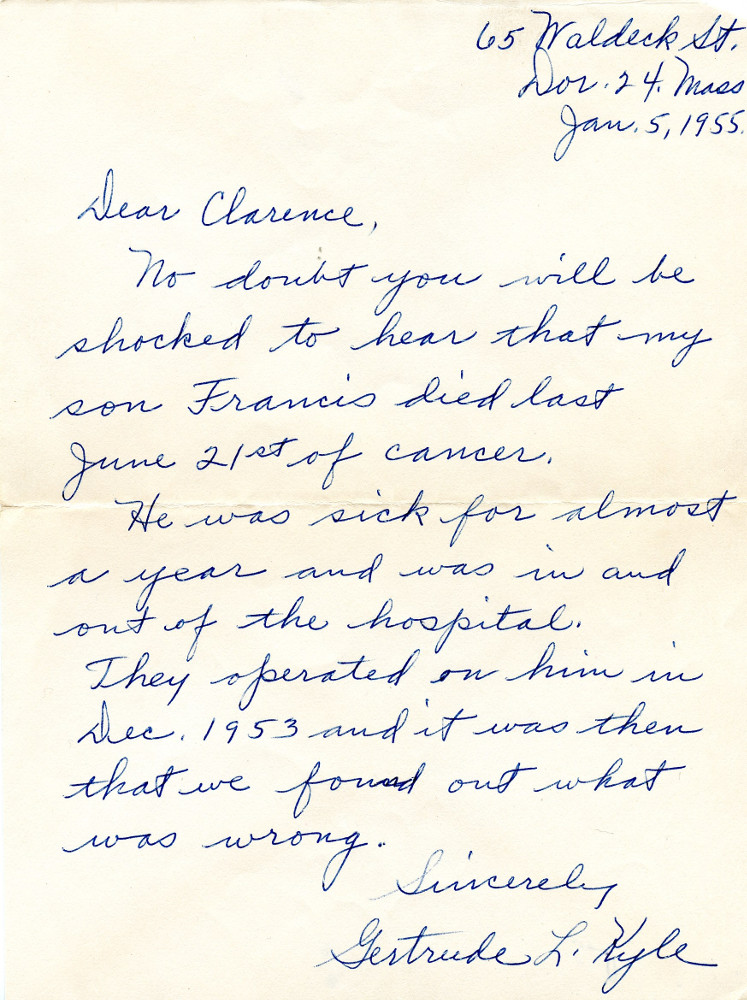 65 Waldeck St.
Dor. 24. Mass
Jan. 5, 1955.
Dear Clarence,
No doubt you will be
shocked to hear that my
son Francis died last
June 21st of cancer.
He was sick for almost
a year and was in and
out of the hospital.
They operated on him in
Dec. 1953 and it was then
that we found out what
was wrong.
Sincerely
Gertrude L. Kyle